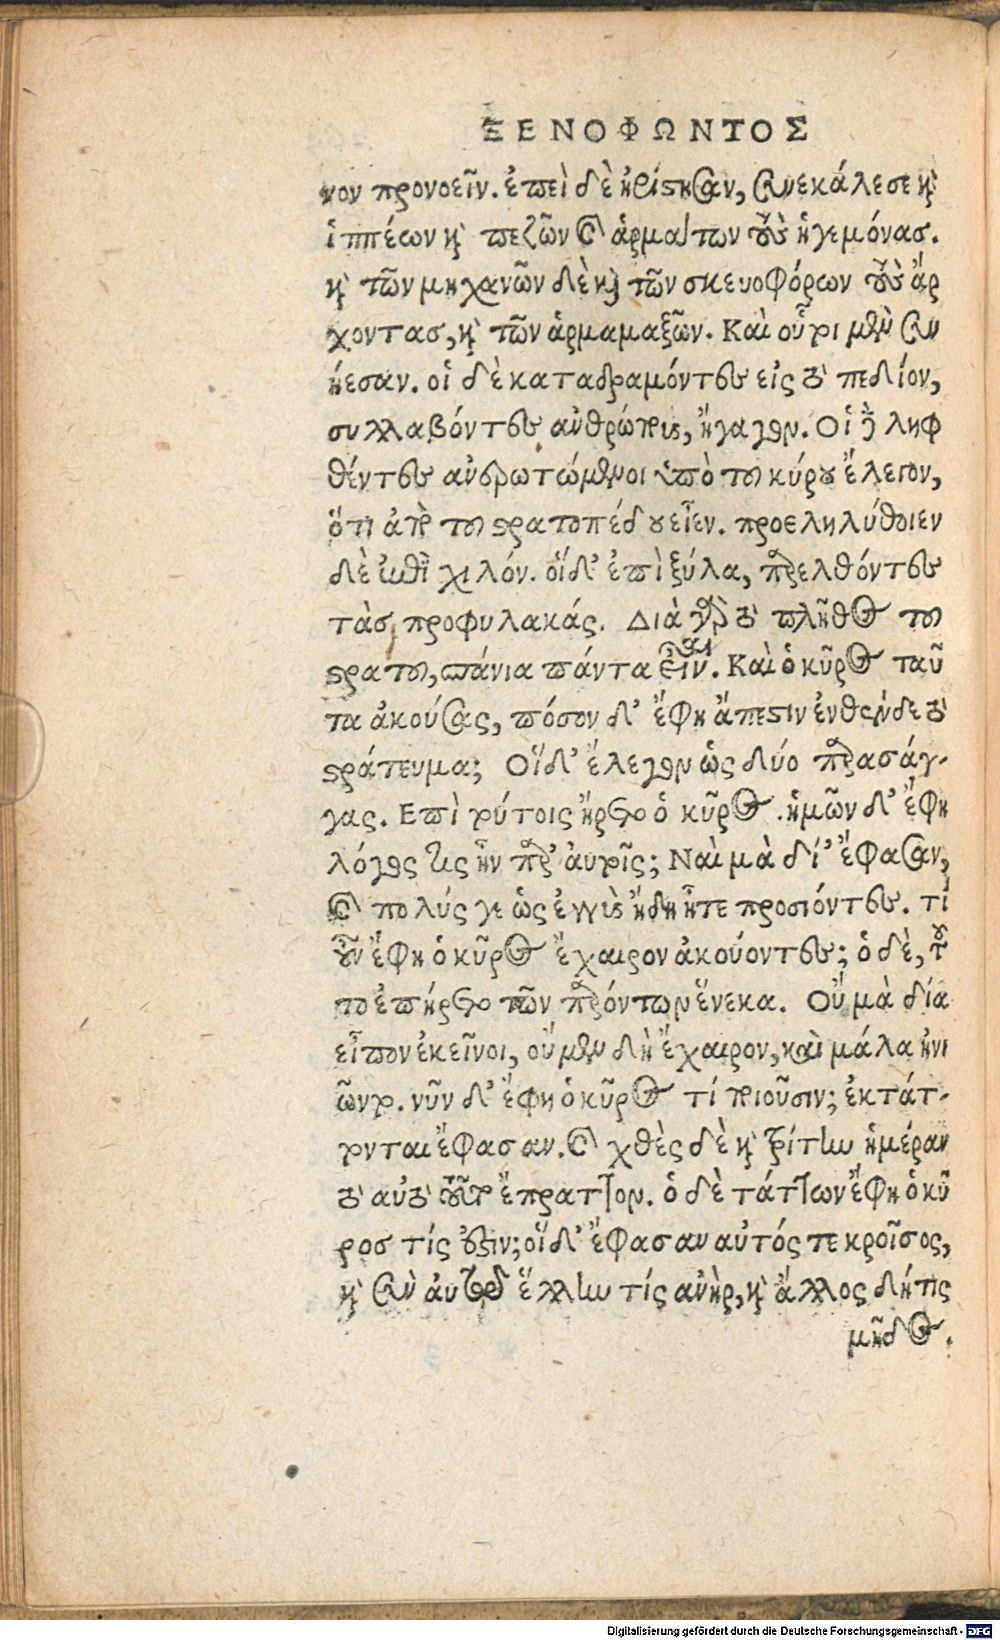 ΞΕΝΟΦΩΝΤΟΣ
νον προνοεῖν. ἐπεὶ δὲ ἠρίστησαν, συνεκάλεσε καὶ
ἱππέων καὶ πεζῶν καὶ ἁρμάτων τοὺς ἡγεμόνας.
καὶ τῶν μηχανῶν δὲ καὶ τῶν σκευοφόρων τοὺς ἄρ
χοντας, καὶ τῶν ἁρμαμαξῶν. Καὶ οὗτοι μὲν συν
ήεσαν. οἱ δὲ καταδραμόντες εἰς τὸ πεδίον,
συλλαβόντες ἀνθρώπους, ἤγαγον. Οἱ δὲ ληφ
θέντες ἀνερωτώμενοι ὑπὸ τοῦ κύρου ἔλεγον,
ὅτι ἀπὸ τοῦ στρατοπέδου εἶεν. προεληλύθοιεν
δὲ ἐπὶ χιλόν. οἵδ' ἐπὶ ξύλα, παρελθόντες
τὰς προφυλακάς. Διὰ γὰρ τὸ πλῆθος τοῦ
στρατοῦ, σπάνια πάντα εἶναι. Καὶ ὁ κῦρος ταῦ
τα ἀκούσας, πόσον δ' ἔφη ἄπεστιν ἐνθένδε τὸ
στράτευμα; Οἵδ' ἔλεγον ὡς δύο παρασάγ-
γας. Επὶ τούτοις ἤρετο ὁ κῦρος. ἡμῶν δ' ἔφη
λόγος τις ἦν παρ' αὐτοῖς; Ναὶ μὰ δί' ἔφασαν,
καὶ πολύς γε ὡς ἐγγὺς ἤδη ἦτε προσιόντες. τί
οὖν ἔφη ὁ κῦρος ἔχαιρον ἀκούοντες; ὁ δὲ, τοῦ
το ἐπήρετο τῶν παρόντων ἕνεκα. Οὔ μὰ δία
εἶπον ἐκεῖνοι, οὔ μεν δὴ ἔχαιρον, καὶ μάλα ἠνι
ῶντο. νῦν δ' ἔφη ὁ κῦρος τί ποιοῦσιν; ἐκτάτ-
τονται ἔφασαν. καὶ χθὲς δὲ καὶ τρίτην ἡμέραν
τὸ αὐτὸ τοῦτο ἔπραττον. ὁ δὲ τάττων ἔφη ὁ κῦ
ρος τίς ἐστιν; οἵδ' ἔφασαν αὐτός τε κροῖσος,
καὶ σὺν αὐτῷ ἕλλην τίς ἀνὴρ, καὶ ἄλλος δήτις
μῆδος.
Digitalisierung gefördert durch die Deutsche Forschungsgemeinschaft - DFG